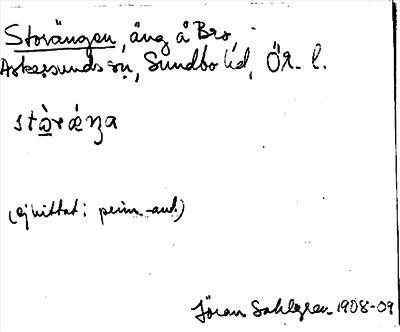 Storängen, äng å Bro,
Askersunds sn, Sundbo hd, Ör. l.
stὼrǽŋa
(ej hittat i prim.-aut.)
Jöran Sahlgren 1908-09